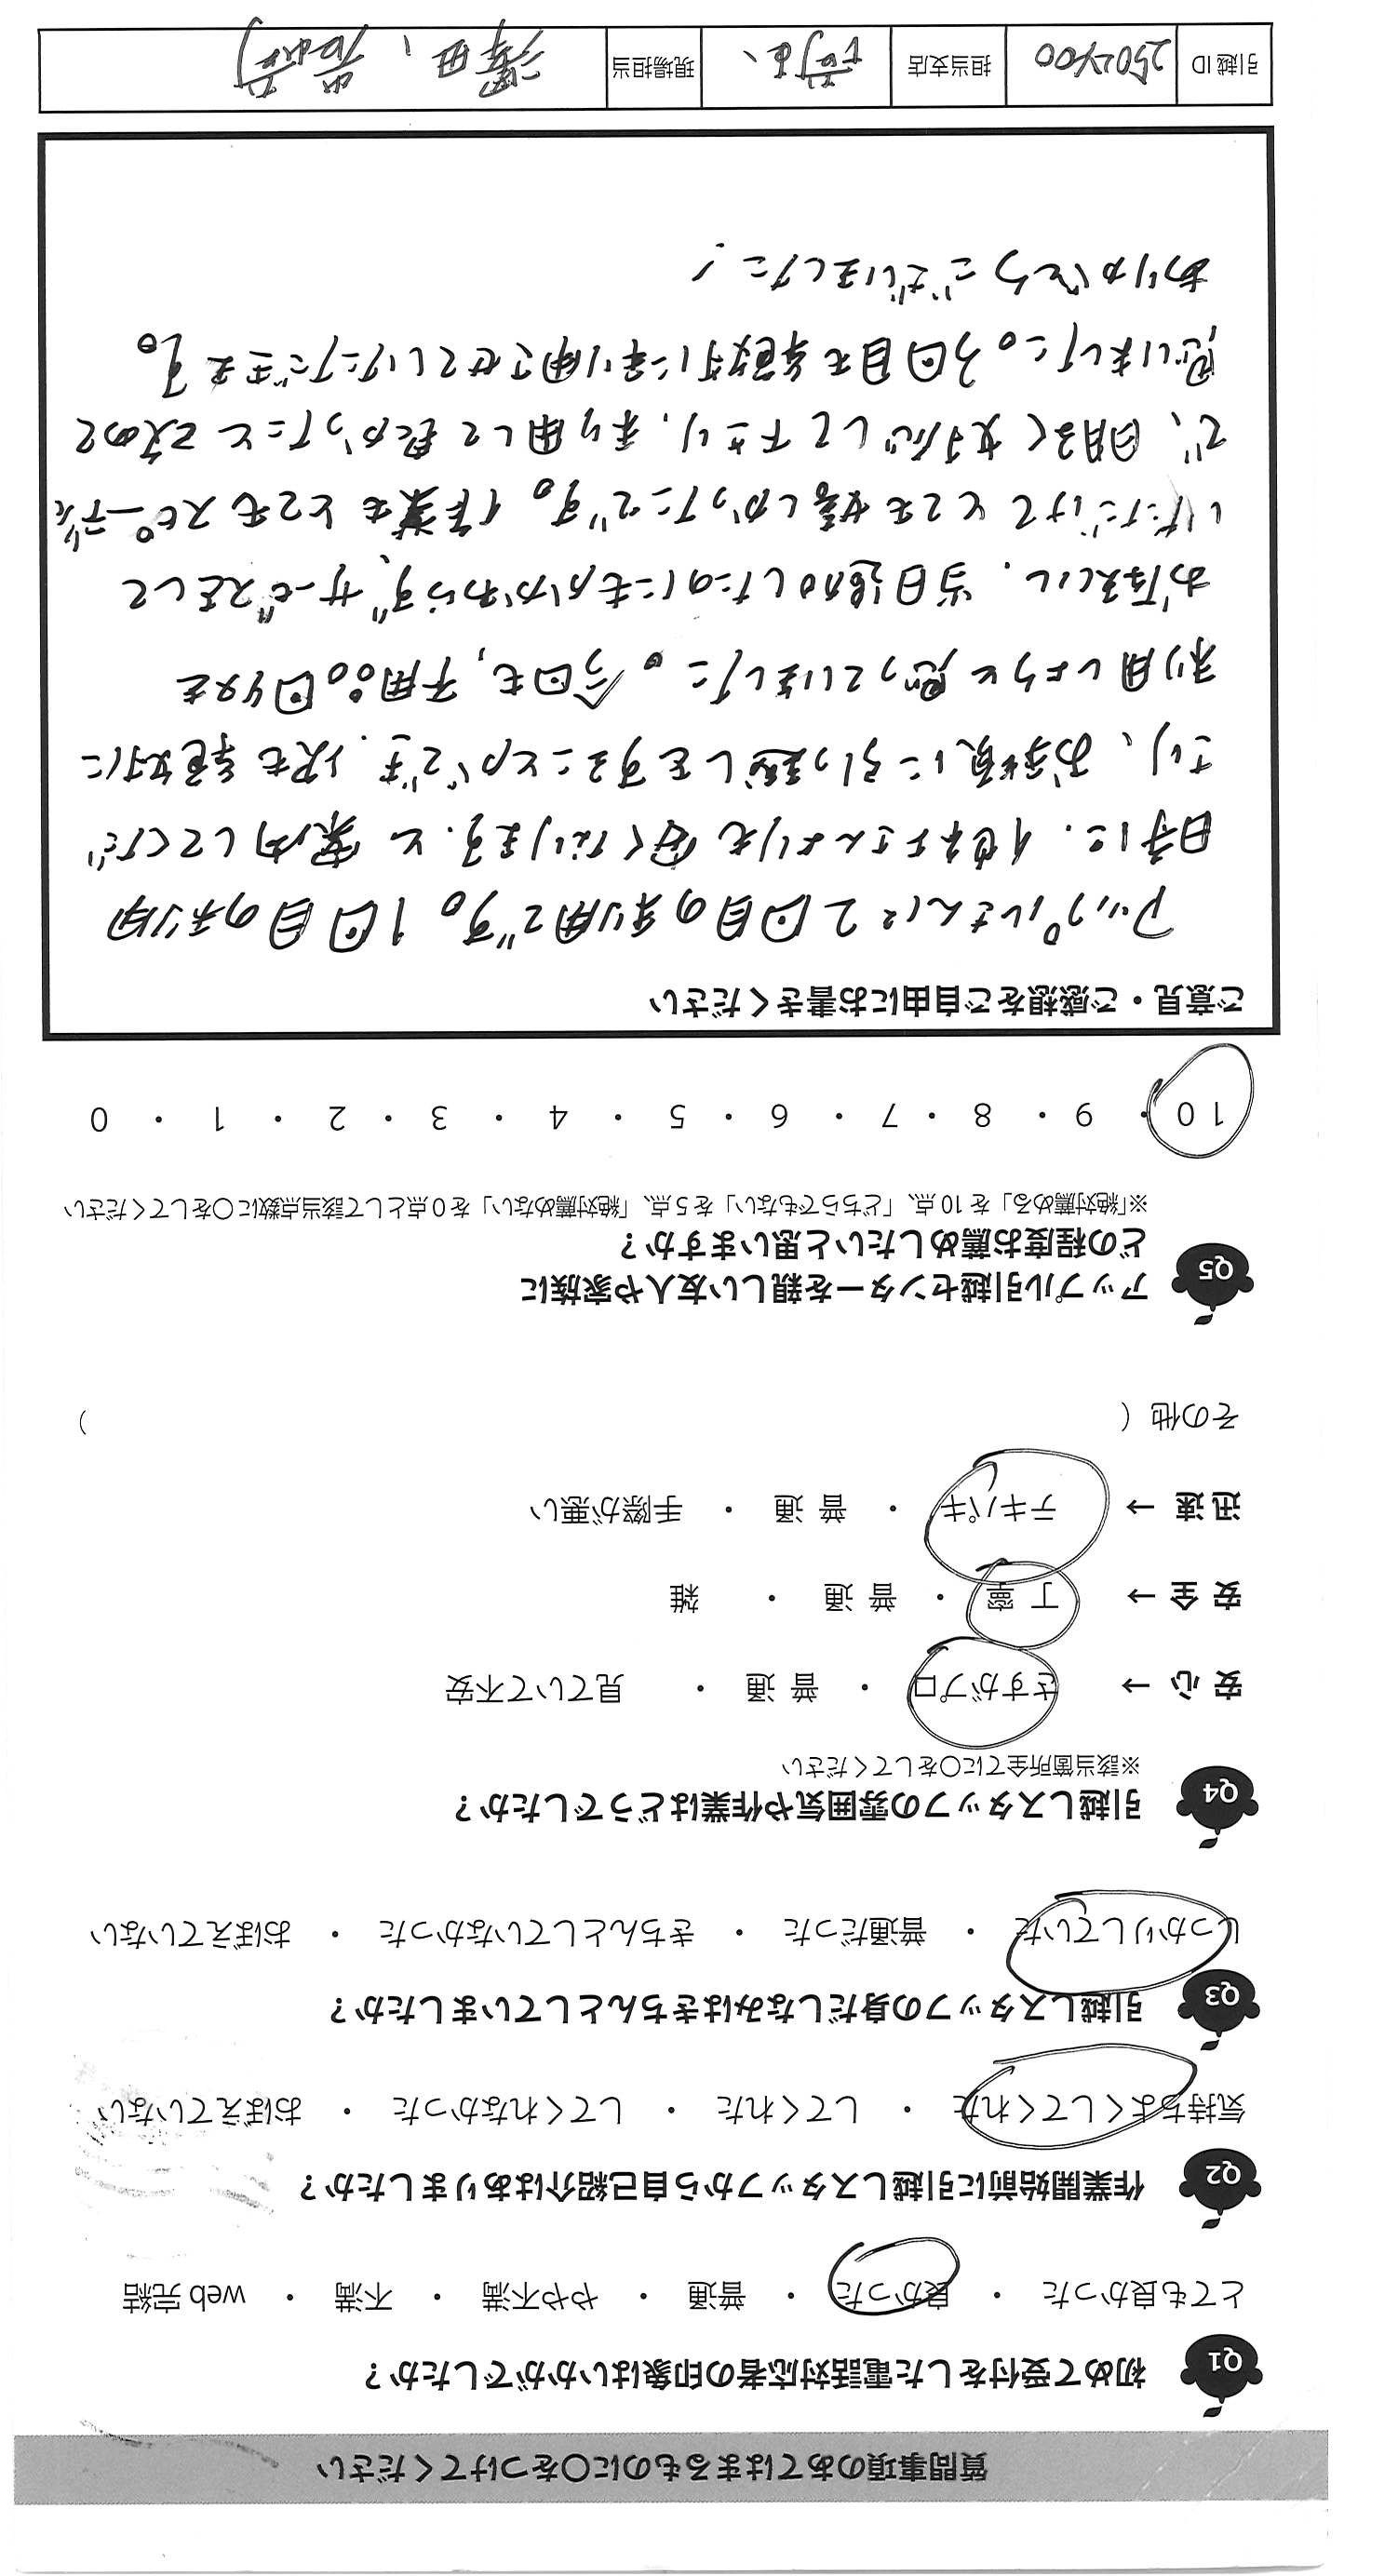 質問事項のあてはまるものに○をつけてください
Q1 初めて受付をした電話対応者の印象はいかがでしたか？
とても良かった ・ 良かった ・ 普通 ・ やや不満 ・ 不満 ・ web 完結
Q2 作業開始前に引越しスタッフから自己紹介はありましたか？
気持ちよくしてくれた ・ してくれた ・ してくれなかった ・ おぼえていない
Q3 引越しスタッフの身だしなみはきちんとしていましたか？
しっかりしていた ・ 普通だった ・ きちんとしていなかった ・ おぼえていない
Q4 引越しスタッフの雰囲気や作業はどうでしたか？
※該当箇所全てに○をしてください
安心 → さすがプロ ・ 普通 ・ 見ていて不安
安全 → 丁寧 ・ 普通 ・ 雑
迅速 → テキパキ ・ 普通 ・ 手際が悪い
その他（ ）
Q5 アップル引越センターを親しい友人や家族に
どの程度お薦めしたいと思いますか？
※「絶対薦める」を 10 点、「どちらでもない」を 5 点、「絶対薦めない」を 0 点として該当点数に○をしてください
10 ・ 9 ・ 8 ・ 7 ・ 6 ・ 5 ・ 4 ・ 3 ・ 2 ・ 1 ・ 0
ご意見・ご感想をご自由にお書きください
アップルさんは2回目の利用です。1回目の利用
時に、他社さんよりも安くなります。と案内してくだ
さり、お手頃に引っ越しをすることができ、次も絶対に
利用しようと思っていました。今回も、不用品回収を
お伝えし、当日追加したのにもかかわらず、サービスとして
いただけてとても嬉しかったです。作業もとてもスピーディ
で、明るく対応して下さり、利用して良かったと改めて
思いました。3回目も絶対に利用させていただきます。
ありがとうございました！
引越 ID 2502400 担当支店 現場担当 澤田、